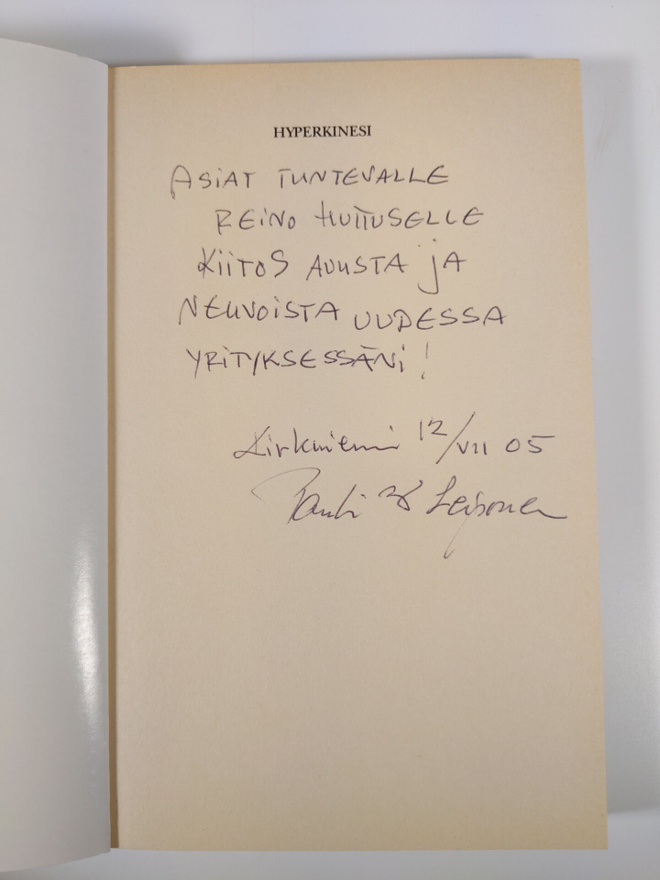 HYPERKINESI
ASIAT TUNTEVALLE
REINO HUITUSELLE
KIITOS AVUSTA JA
NEUVOISTA UUDESSA
YRITYKSESSÄNI!
Kirkniemi 12/VII 05